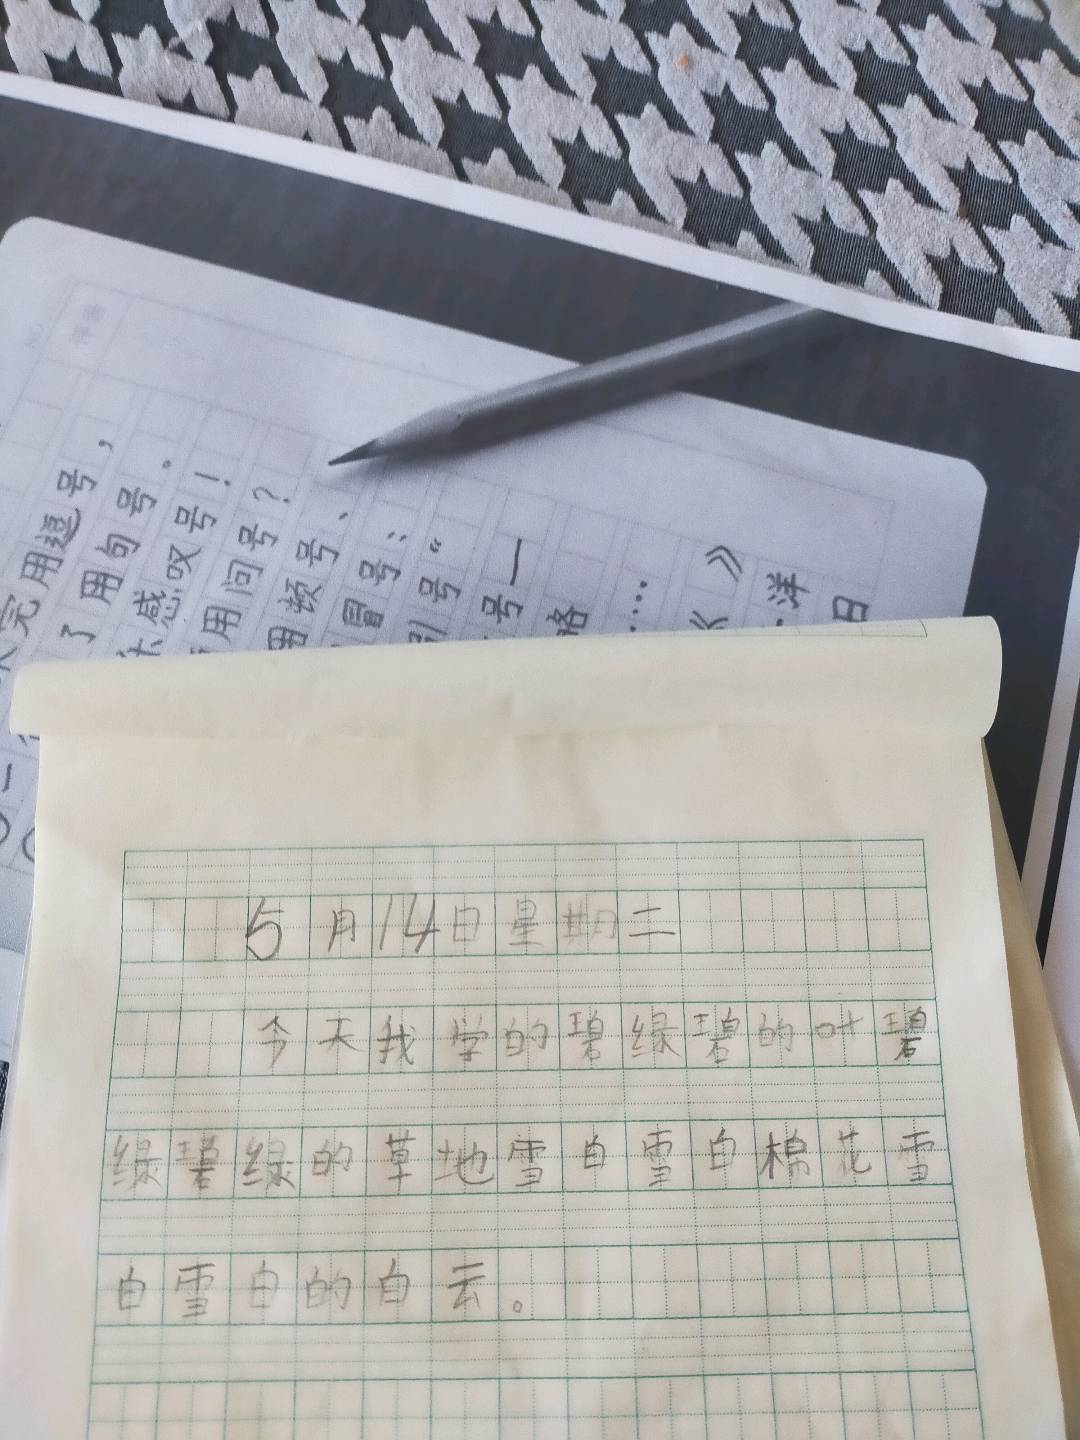 完用逗号，
了用句号。
感叹号！
用问号？
用顿号、
冒号：
引号“
号—
……
《》
洋
日
5月14日星期二
今天我学的碧绿碧的叶碧
绿碧绿的草地雪白雪白棉花雪
白雪白的白云。